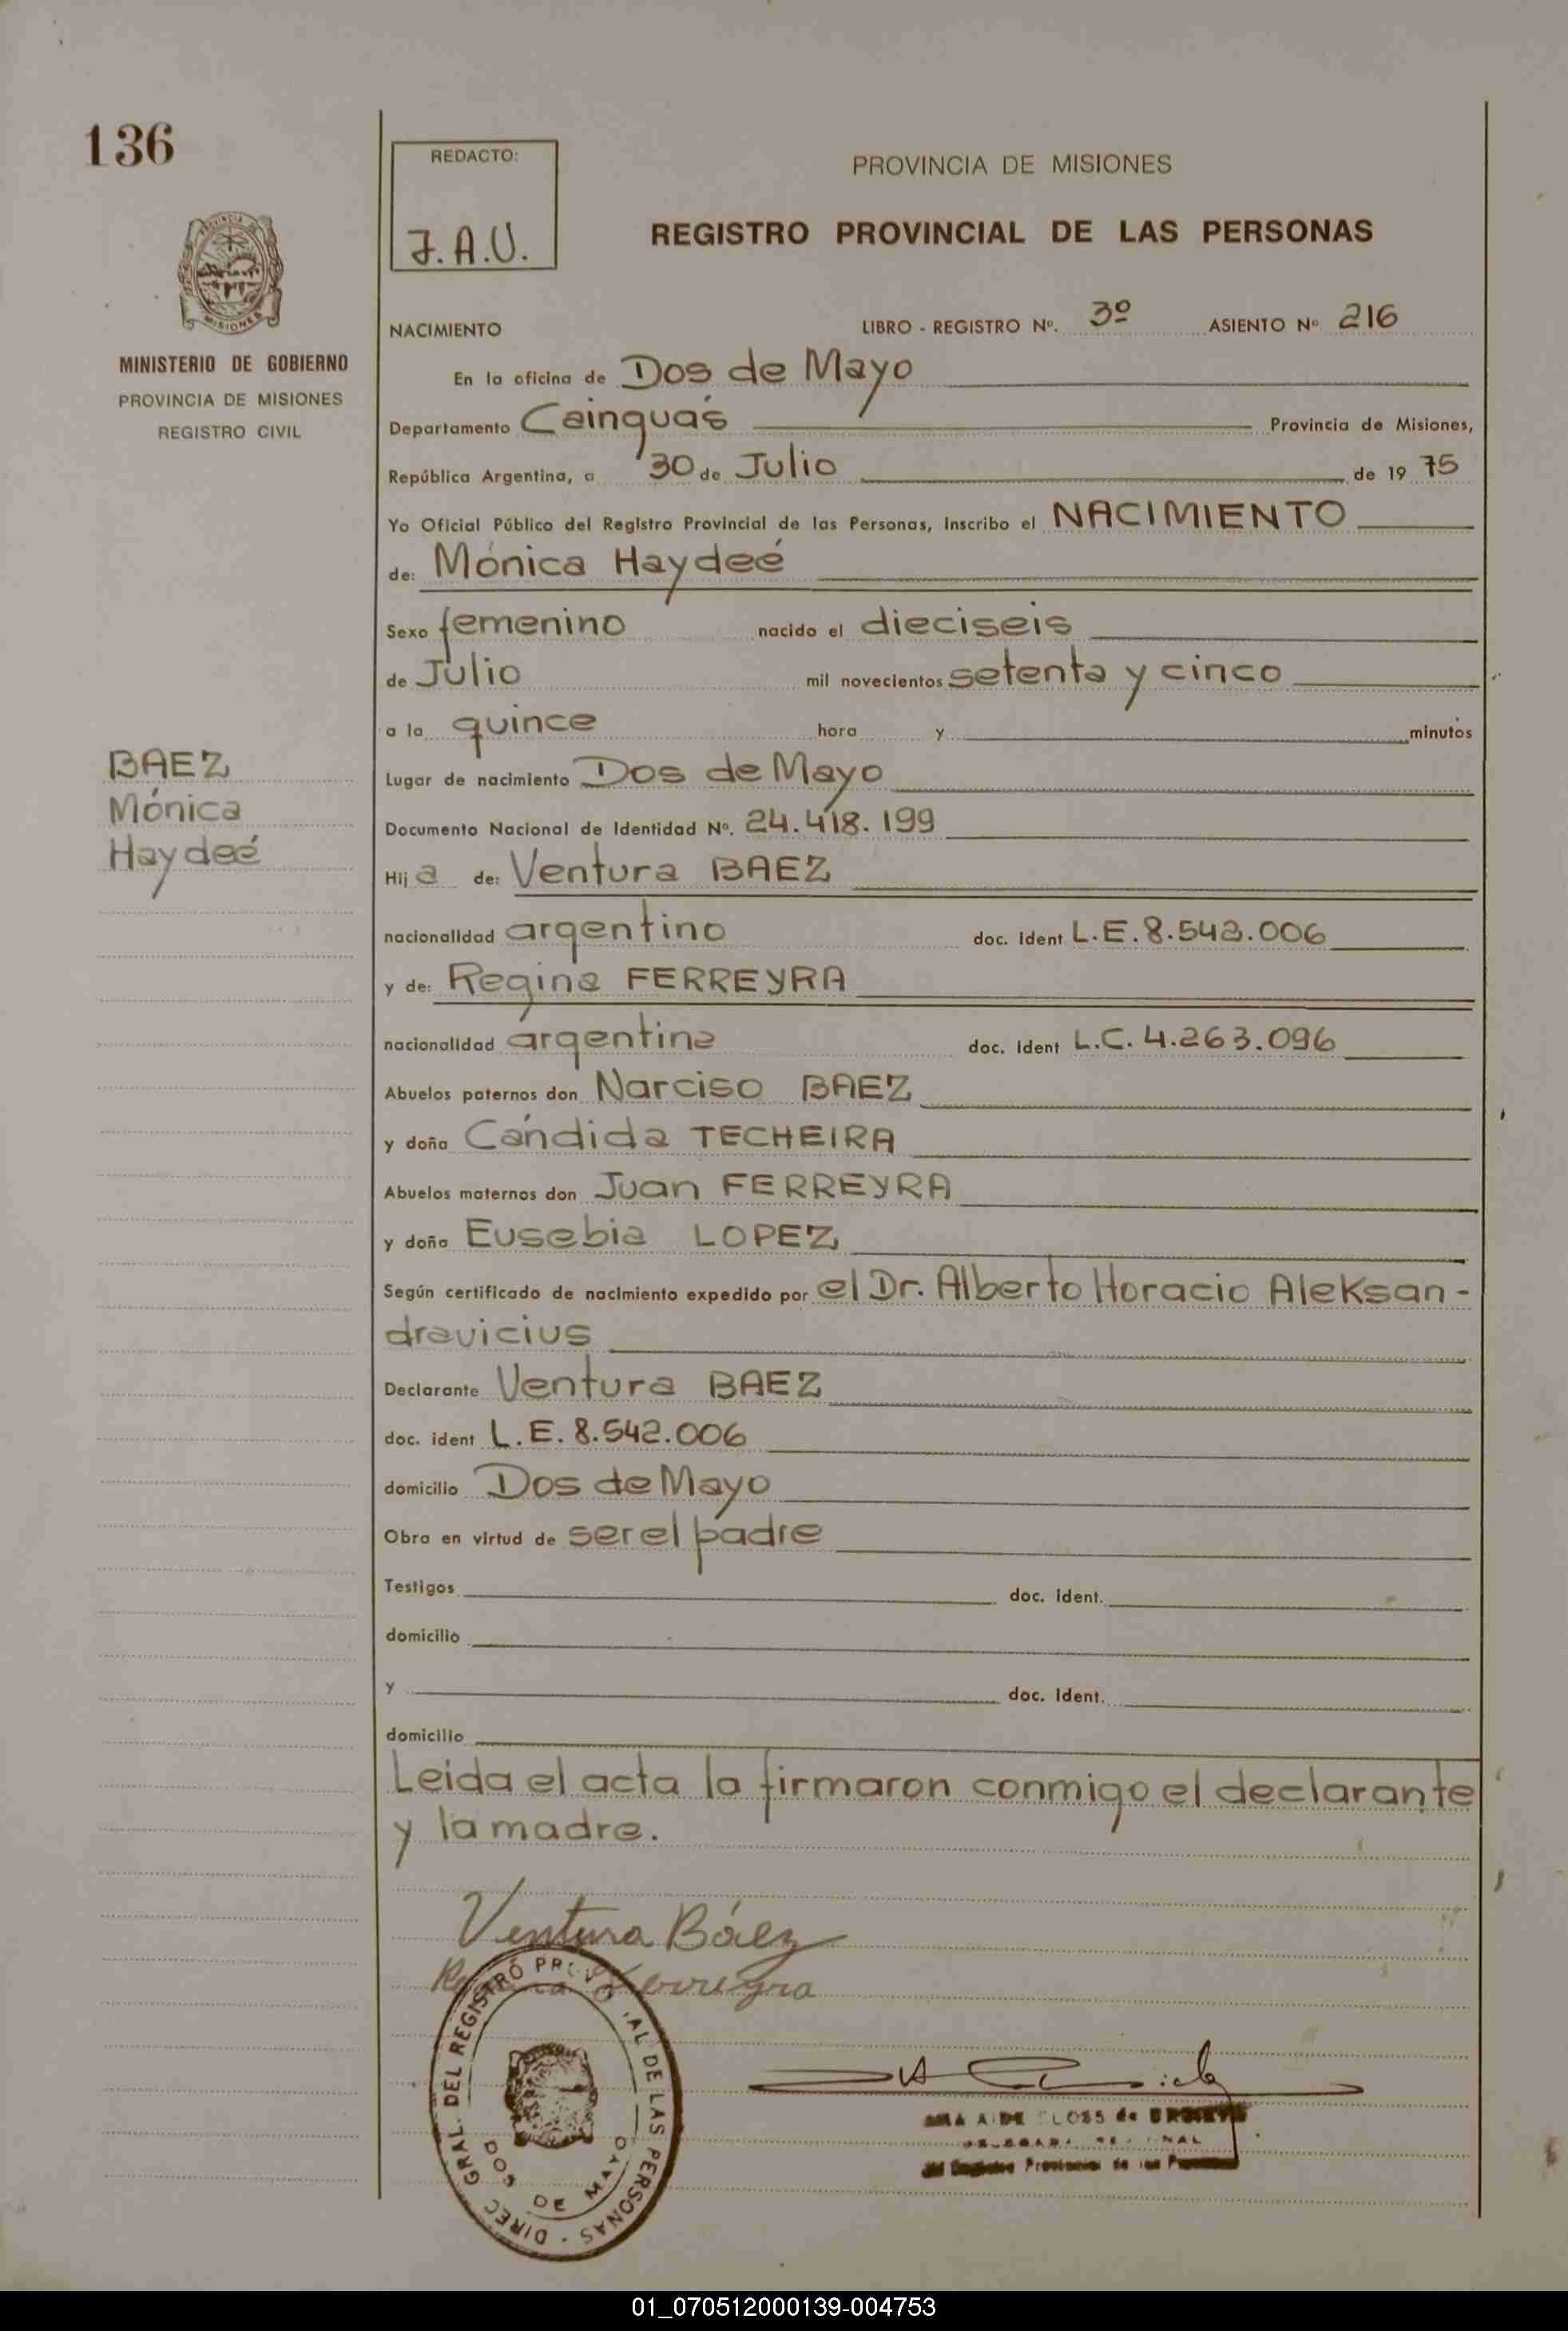 136
REDACTO:
J.A.U.
PROVINCIA DE MISIONES
REGISTRO PROVINCIAL DE LAS PERSONAS
PROVINCIA
MISIONES
MINISTERIO DE GOBIERNO
PROVINCIA DE MISIONES
REGISTRO CIVIL
NACIMIENTO LIBRO - REGISTRO Nº. 3º ASIENTO Nº 216
En la oficina de Dos de Mayo
Departamento Cainguás Provincia de Misiones,
República Argentina, a 30 de Julio de 19 75
Yo Oficial Público del Registro Provincial de las Personas, inscribo el NACIMIENTO
de: Mónica Haydeé
Sexo femenino nacido el dieciseis
de Julio mil novecientos setenta y cinco
a la quince hora y minutos
BAEZ
Mónica
Haydeé
Lugar de nacimiento Dos de Mayo
Documento Nacional de Identidad Nº. 24.418.199
Hij a de: Ventura BAEZ
nacionalidad argentino doc. ident L.E. 8.542.006
y de: Regina FERREYRA
nacionalidad argentina doc. ident L.C. 4.263.096
Abuelos paternos don Narciso BAEZ
y doña Cándida TECHEIRA
Abuelos maternos don Juan FERREYRA
y doña Eusebia LOPEZ
Según certificado de nacimiento expedido por el Dr. Alberto Horacio Aleksan-
dravicius
Declarante Ventura BAEZ
doc. ident L.E. 8.542.006
domicilio Dos de Mayo
Obra en virtud de ser el padre
Testigos doc. ident.
domicilio
y doc. ident.
domicilio
Leida el acta la firmaron conmigo el declarante
y la madre.
Ventura Báez
Ferreyra
DIREC GRAL. DEL REGISTRO PROVINCIAL DE LAS PERSONAS
DOS DE MAYO
Provincial de las
01_070512000139-004753